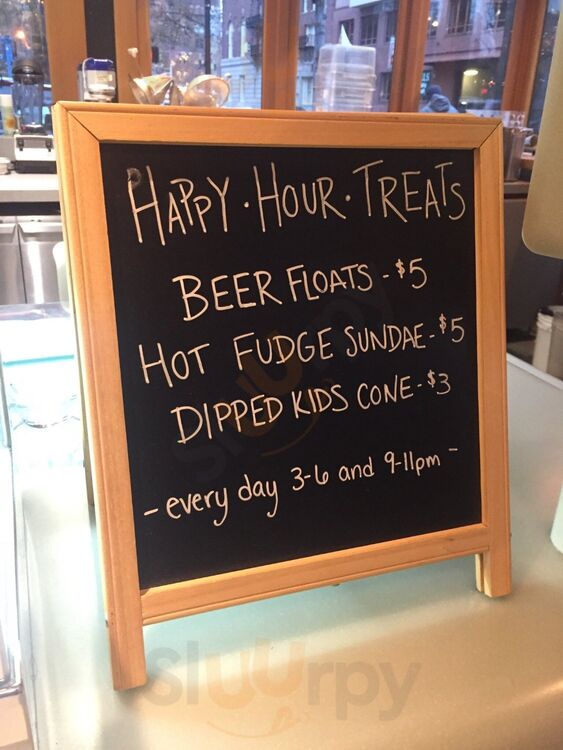 HAPPY · HOUR · TREATS
BEER FLOATS - $5
HOT FUDGE SUNDAE - $5
DIPPED KIDS CONE - $3
- every day 3-6 and 9-11pm -
Sluurpy